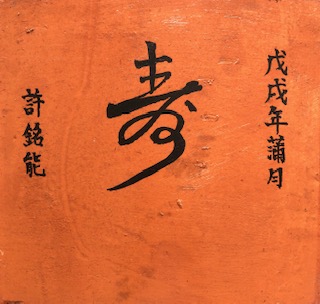 戊戌年蒲月
寿
許銘能